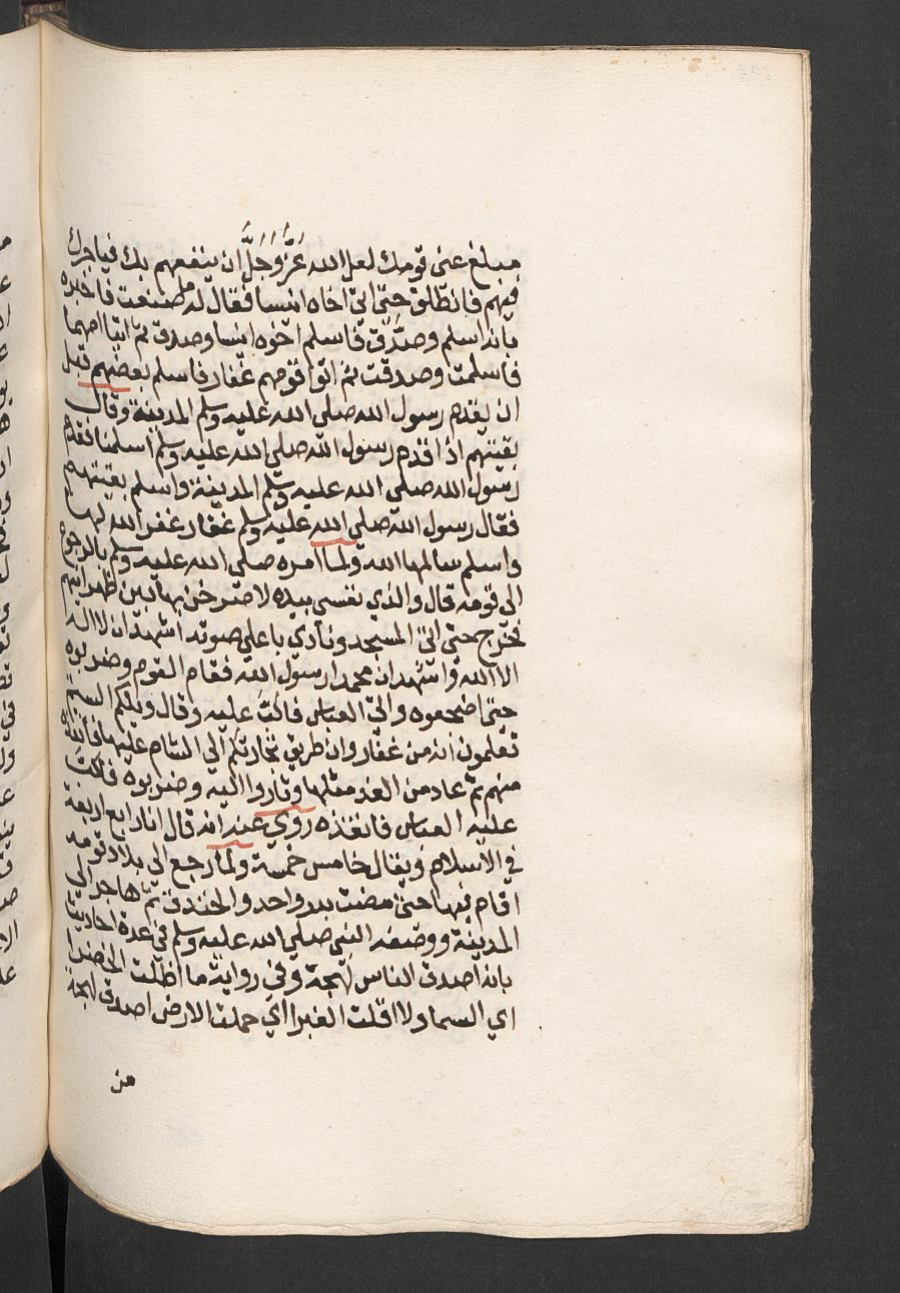 مبلغ عنى قومك لعل الله عز وجل ان ينفعهم بك فياجرك
فيهم فانطلق حتى اتى اخاه انيسا فقال له ما صنعت فاخبره
بانه اسلم وصدق فاسلم اخوه انيسا وصدق ثم اتيا امهما
فاسلمت وصدقت ثم اتوا قومهم غفار فاسلم بعضهم قبل
ان يقدم رسول الله صلى الله عليه وسلم المدينة وقال
بقيتهم اذا قدم رسول الله صلى الله عليه وسلم اسلمنا فقدم
رسول الله صلى الله عليه وسلم المدينة واسلم بقيتهم
فقال رسول الله صلى الله عليه وسلم غفار غفر الله لها
واسلم سالمها الله ولما امره صلى الله عليه وسلم بالرجوع
الى قومه قال والذي نفسي بيده لاصرخن بها بين ظهرانيهم
فخرج حتى اتى المسجد ونادي باعلى صوته اشهد ان لا اله
الا الله واشهد ان محمدا رسول الله فقام القوم وضربوه
حتى اضجعوه واتى العباس فاكب عليه وقال ويلكم الستم
تعلمون انه من غفار وان طريق تجارتكم الى الشام عليها فانقذه
منهم ثم عاد من الغد مثلها وثاروا اليه وضربوه فاكب
عليه العباس فانقذه روي عنه انه قال انا رابع اربعة
في الاسلام ويقال خامس خمسة ولما رجع الى بلاد قومه
اقام فيها حتى مضت بدر واحد والخندق ثم هاجر الى
المدينة ووصفه النبي صلى الله عليه وسلم في عدة احاديث
بانه اصدق الناس لهجة وفي رواية ما اظلت الخضرا
اي السما ولا اقلت الغبرا اي حملت الارض اصدق لهجة
من